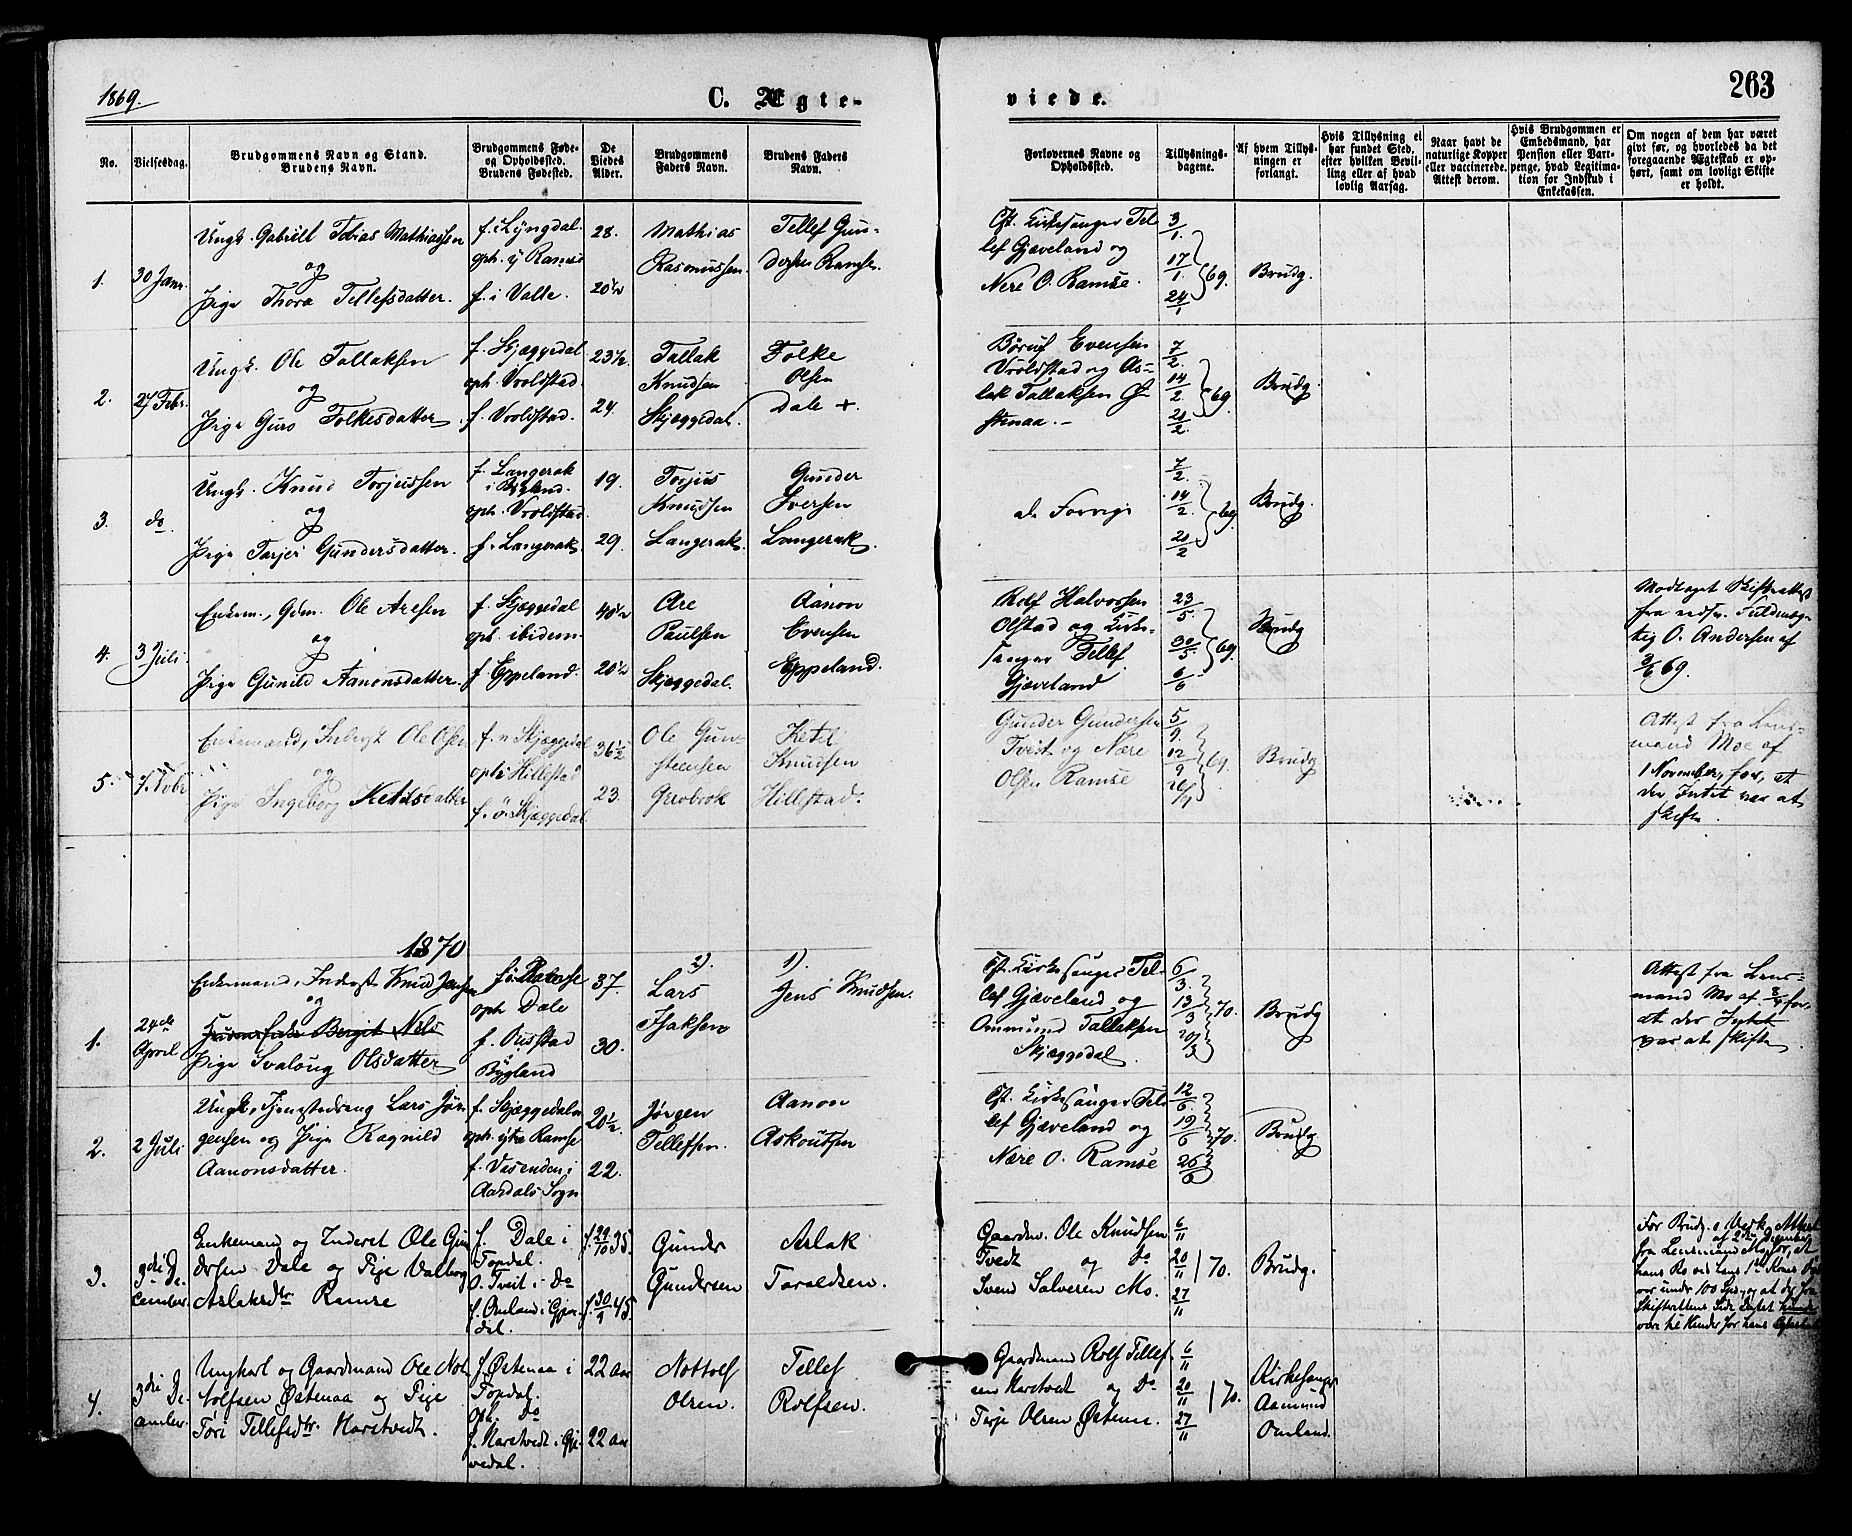 1869.
C. Ægte-
viede.
263
No.
Vielsesdag.
Brudgommens Navn og Stand.
Brudens Navn.
Brudgommens Føde-
og Opholdssted.
Brudens Fødested.
De
Viedes
Alder.
Brudgommens
Faders Navn.
Brudens Faders
Navn.
Forlovernes Navne og
Opholdssted.
Tillysnings-
dagene.
Af hvem Tillys-
ningen er
forlangt.
Hvis Tillysning ei
har fundet Sted,
efter hvilken Bevil-
ling eller af hvad
lovlig Aarsag.
Naar havt de
naturlige Kopper
eller vaccinerede.
Attest derom.
Hvis Brudgommen er
Embedsmand, har
Pension eller Vart-
penge, hvad Legitima-
tion for Indskud i
Enkekassen.
Om nogen af dem har været
givt før, og hvorledes da det
foregaaende Ægteskab er op-
hørt, samt om lovligt Skifte
er holdt.
1.
30 Janr.
Ungk. Gabriel Tobias Mathiassen
og
Pige Thora Tellefsdatter.
f. i Lyngdal
oph. y Ramse
f. i Valle.
28.
20½
Mathias
Rasmussen.
Tellef Gun-
dersen Ramse.
Cst. Kirkesanger Tel-
lef Gjæveland og
Nere O. Ramse.
3/1.
17/1.
24/1
69.
Brudg.
2.
27 Febr.
Ungk. Ole Tallaksen
og
Pige Guro Folkesdatter
f. Skjæggedal
oph. Vroldstad.
f. Vroldstad.
23½
24.
Tallak
Knudsen
Skjæggedal.
Folke
Olsen
Dale +.
Evensen
Vroldstad og As-
lak Tallaksen Ø-
stenaa.
7/2.
14/2
21/2.
69.
Brudg.
3.
do
Ungk. Knud Torjussen
og
Pige Tarjer Gundersdatter.
f. Langerak
i Bygland.
oph. Vroldstad.
f. Langerak
19.
29.
Torjus
Knudsen
Langerak.
Gunder
Iversen
Langerak.
de Forrige
7/2.
14/2.
21/2
69.
Brudg.
4.
3 Juli.
Enkem., Gdm. Ole Aresen
og
Pige Gunild Aanonsdatter.
f. Skjæggedal
oph. ibidem
f. Eppeland.
40½
20½
Are
Paulsen
Skjæggedal.
Aanon
Evensen
Eppeland.
Rolf Halvorsen
Olstad og Kirke-
sanger Tellef
Gjæveland
23/5.
30/5.
6/6
69.
Brudg
Modtaget Skifteattest
fra Fuldmæg-
tig O. Andersen af
3/6 69.
5.
7. Novbr
Enkemand, Inderst Ole Olsen
og
Pige Ingeborg Ketilsdatter
f. n Skjæggedal
oph i Hillestad
f. ö. Skjæggedal
36½
23.
Ole Gun-
steensen
Ketil
Knudsen
Hillestad.
Gunder Gundersen
Tveit og Nære
Olsen Ramse
5/9.
12/9
69.
Brudg
Attest fra Lens-
mand Moe af
1 November, for, at
der Intet var at
skifte.
1870
1.
24de
April.
Enkemand, Inderst Knud Jensen
og
Pige Svaloug Olsdatter
f. i Ramse
oph Dale
f.
Bygland
37
30.
2).
Lars
Isaksen
1).
Jens Knudsen.
Cst. Kirkesanger Tel-
lef Gjæveland og
Ommund Tallaksen
Skjæggedal
6/3.
13/3
20/3
70.
Brudg
Attest fra Lens-
mand Mo af for,
at der Intet
var at skifte.
2.
2 Juli
Ungk., Tjenestedreng Lars Jør-
gensen og Pige Ragnild
Aanonsdatter.
f. Skjæggedal
oph. ytre Ramse
f. Vesenden i
Aardals Sogn
20½.
22.
Jørgen
Tellefsen.
Aanon
Askoutsen
Cst. Kirkesanger Tel-
lef Gjæveland og
Nære O. Ramse
12/6.
19/6
26/6
70.
Brudg.
3.
3die De-
cember.
Enkemand og Inderst Ole Gun-
dersen Dale og Pige Valborg
Aslaksdtr Ramse
f. Dale i
Tovdal.
O. Tveit i do
f. Omland i Gjøv-
dal.
f. 29/10 35.
f. 30/1 45.
Gunder
Gundersen
Aslak
Taraldsen.
Gaardm. Ole Knudsen
Tvedt og do
Svend Salvesen Mo.
6/11
20/11
27/11
70.
Brudg.
4.
3die De-
cember.
Ungkarl og Gaardmand Ole Not-
tolfsen Østenaa og Pige
Tøri Tellefsdtr. Harstvedt.
f. Østenaa i
Tovdal.
Oph. do
f. Harstvedt i Gjø-
vedal.
22 aar
22 aar
Nottolf
Olsen.
Tellef
Rolfsen.
Gaardmand Rolf Tellef-
sen Harstvedt og do
Terje Olsen Østenaa.
6/11
20/11
27/11
70.
Kirkesanger
Aamund
Omland.